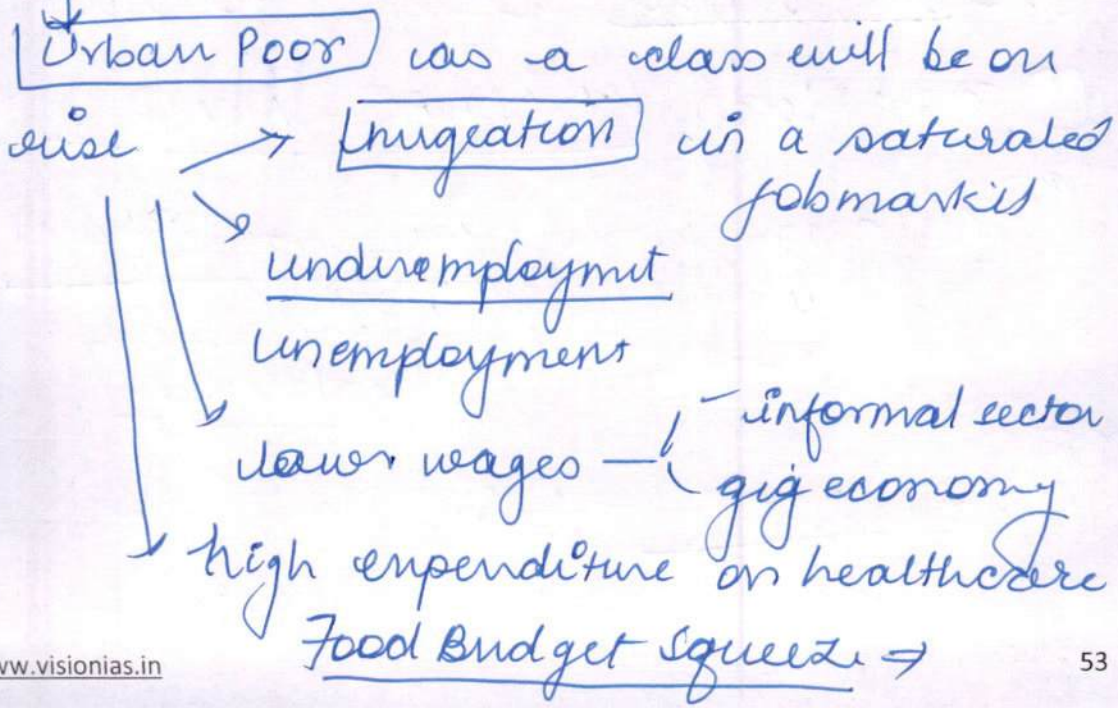 Urban Poor as a class will be on
rise → migration in a saturated
job markets
underemploymnt
unemployment
lower wages — - informal sector
gig economy
high expenditure on healthcare
Food Budget Squeeze ⇒
ww.visionias.in
53